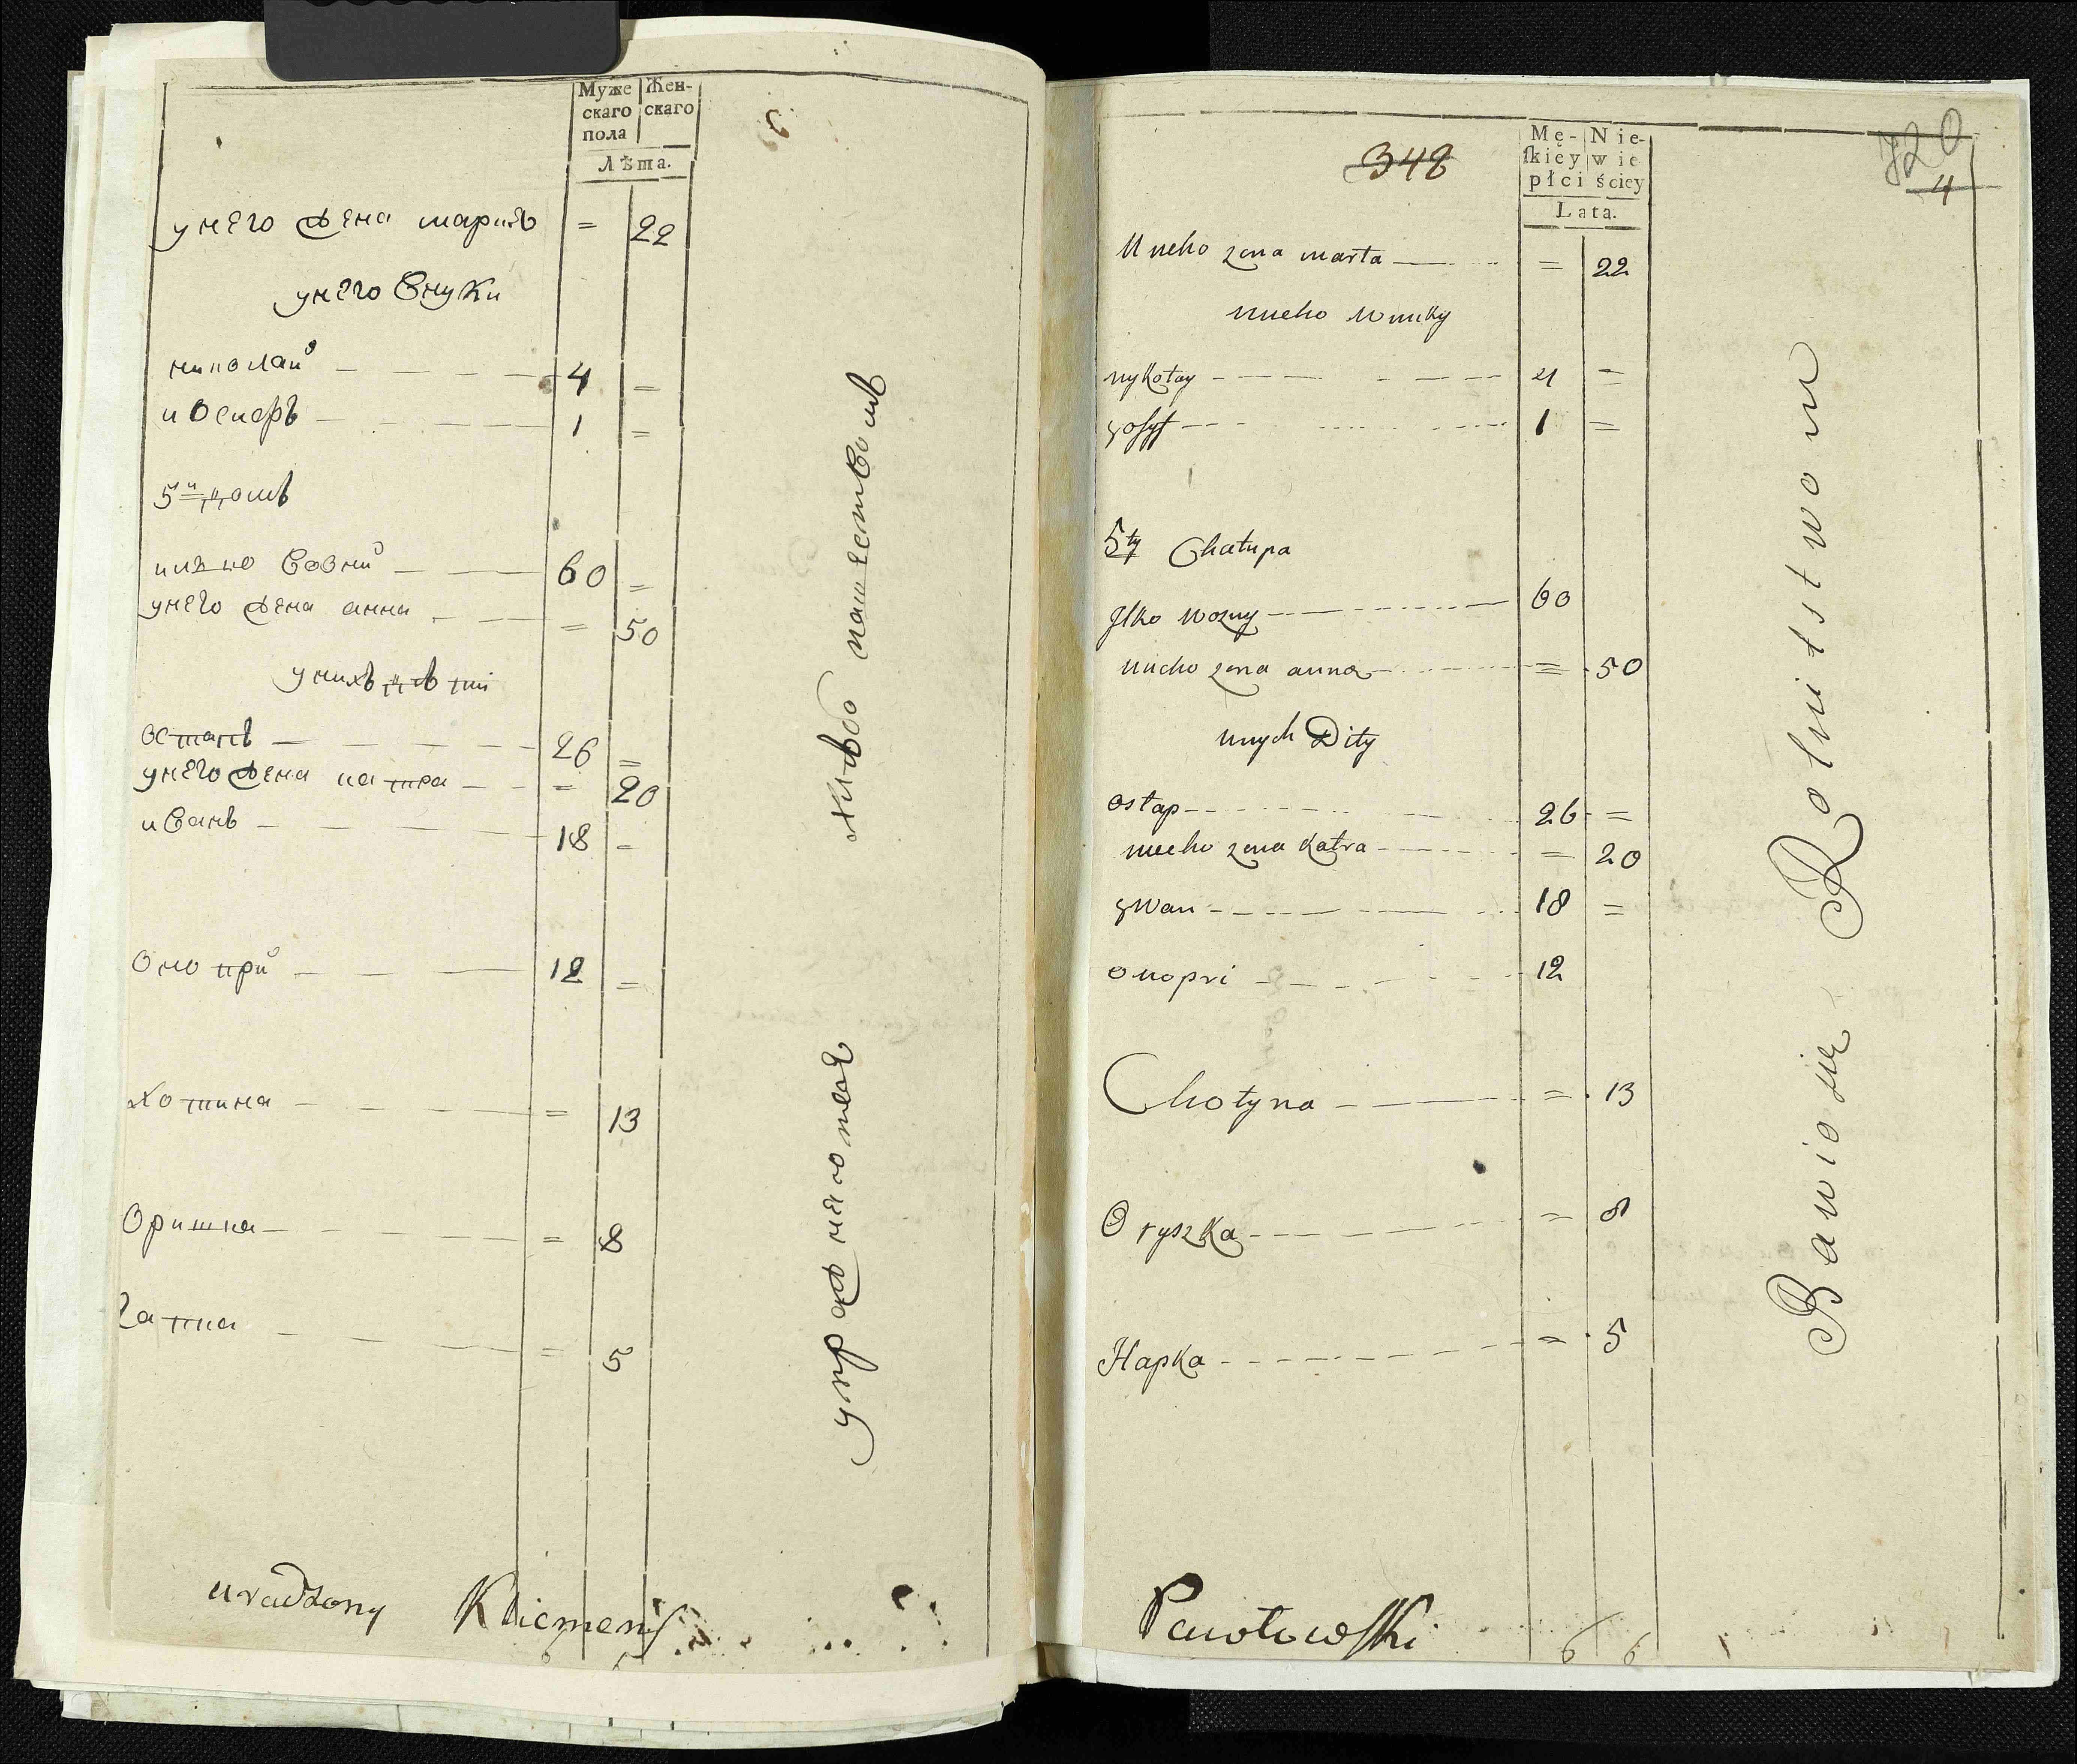 Муже
скаго
пола
Жен-
скаго
Лѣта.
унего жена марта = 22
унего внуки
николай 4 =
иосифъ 1 =
5й домъ
илко возни 60 =
унего жена анна = 50
унихъ дѣти
остапъ 26 =
унего жена катра = 20
иванъ 18 =
онопри 12 =
хотина = 13
оришка = 8
гапка = 5
упражняются хлѣбопашествомъ
urodzony Kliemens
348
Mę-
skiey
płci
Nie-
wie
ściey
Lata.
720
4
Uneho zona marta = 22
uneho wnuky
nykołay 4 =
yosyf 1 =
5ty Chałupa
Ilko wozny 60
uneho zona anna = 50
unych Dity
ostap 26 =
uneho zona katra = 20
ywan 18 =
onopri 12
Chotyna = 13
Oryszka = 8
Hapka = 5
Bawio się Rolnitstwom
Pawłowski
6 6